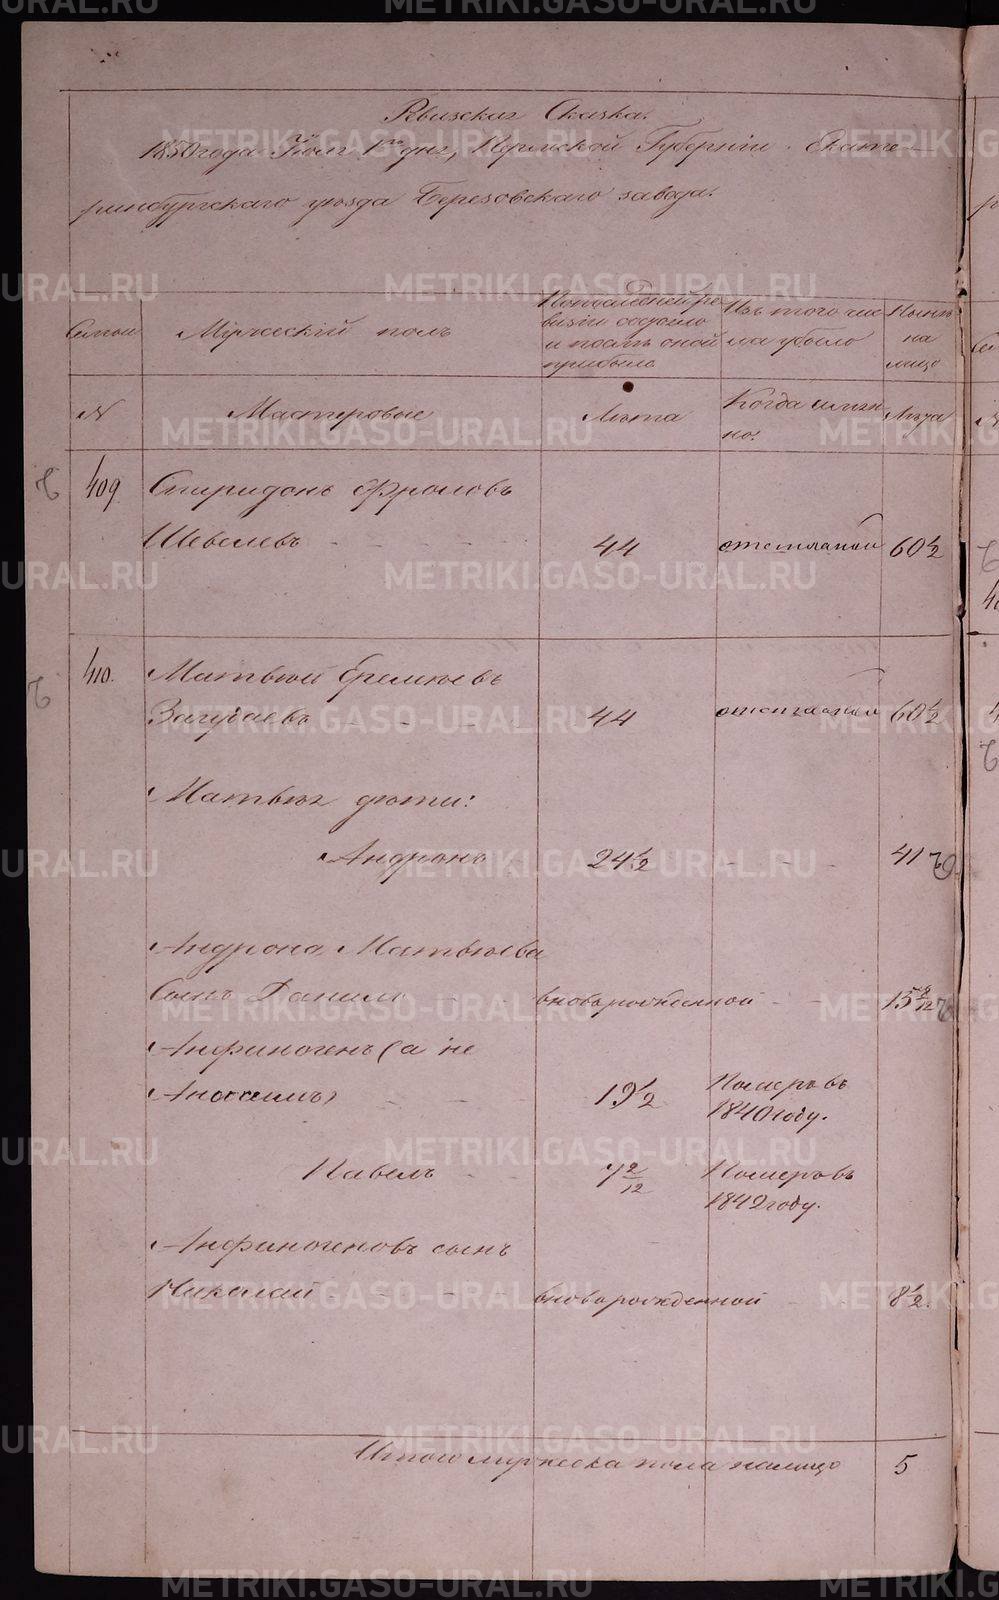 Рвизская Сказка.
1850 года Июля 1го дня, Пермской Губернiи Екате-
ринбургскаго уѣзда Березовскаго завода.
Семьи
Мужескiй полъ
По последней ре
визiи состояло
и послѣ оной
прибыло
Изъ того чис
ла убыло
Нынѣ
на
лицо
N
Мастеровые
Лѣта
Когда именн
но.
Лѣта
409
Спиридонъ Фроловъ
Шевелевъ
44
отставной
60 1/2
410.
Матвѣй Еремѣевъ
44
отставной
60 1/2
Матвѣя дѣти:
Андронъ
24 1/2
41
Андрона Матвѣева
Сынъ Данило
вноворожденной
15 9/12
Анфиногенъ (а не
19 1/2
Померъ въ
1840 году.
Павелъ
7 2/12
Померъ въ
1842 году.
Анфиногеновъ сынъ
Николай
вноворожденной
8 1/2.
Итого мужеска пола налицо
5
METRIKI.GASO-URAL.RU